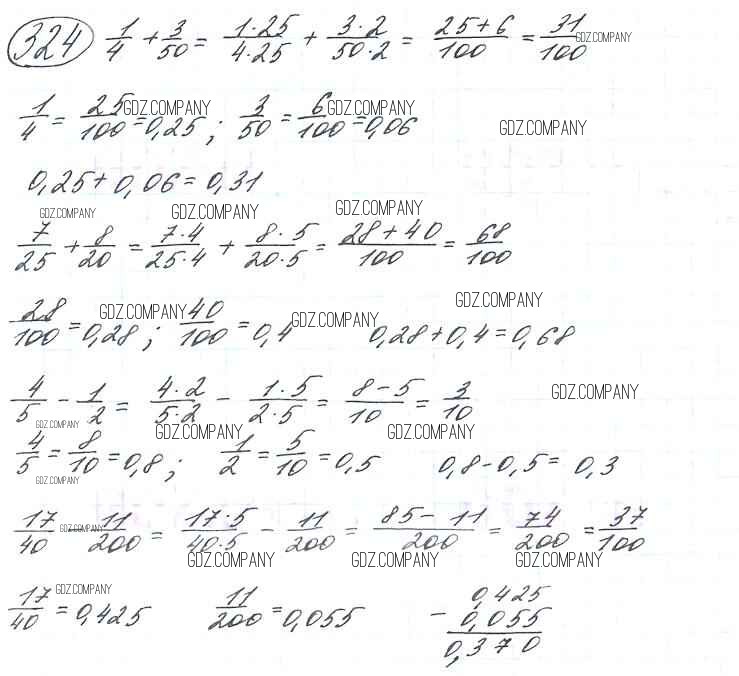 324 1/4 + 3/50 = 1·25/4·25 + 3·2/50·2 = 25+6/100 = 31/100 GDZ.COMPANY
1/4 = 25/100 = 0,25 ; 3/50 = 6/100 = 0,06 GDZ.COMPANY GDZ.COMPANY GDZ.COMPANY
0,25 + 0,06 = 0,31
GDZ.COMPANY GDZ.COMPANY GDZ.COMPANY
7/25 + 8/20 = 7·4/25·4 + 8·5/20·5 = 28+40/100 = 68/100
28/100 = 0,28 ; 40/100 = 0,4 0,28 + 0,4 = 0,68 GDZ.COMPANY GDZ.COMPANY GDZ.COMPANY
4/5 - 1/2 = 4·2/5·2 - 1·5/2·5 = 8-5/10 = 3/10 GDZ.COMPANY
GDZ.COMPANY GDZ.COMPANY GDZ.COMPANY
4/5 = 8/10 = 0,8 ; 1/2 = 5/10 = 0,5 0,8 - 0,5 = 0,3
GDZ.COMPANY
17/40 - 11/200 = 17·5/40·5 - 11/200 = 85-11/200 = 74/200 = 37/100 GDZ.COMPANY
GDZ.COMPANY GDZ.COMPANY GDZ.COMPANY
GDZ.COMPANY
17/40 = 0,425 11/200 = 0,055 0,425
- 0,055
0,370